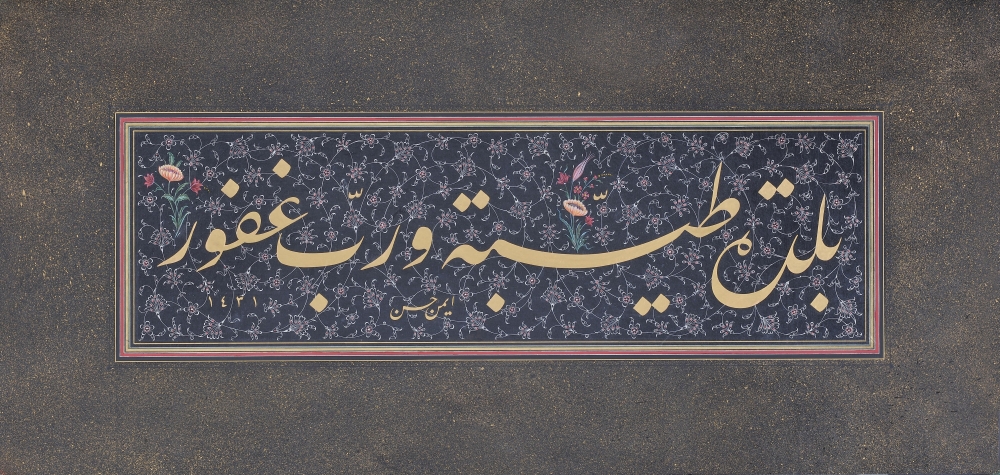 بلدة طيّبة وربّ غفور
ايمن حسن
١٤٣١